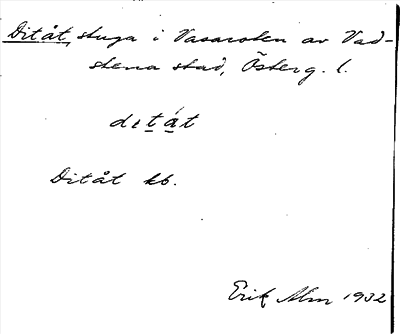 Ditåt, stuga i Vasaroten av Vad-
stena stad, Österg. l.
dıt́át
Ditåt kb.
Erik Alm 1932